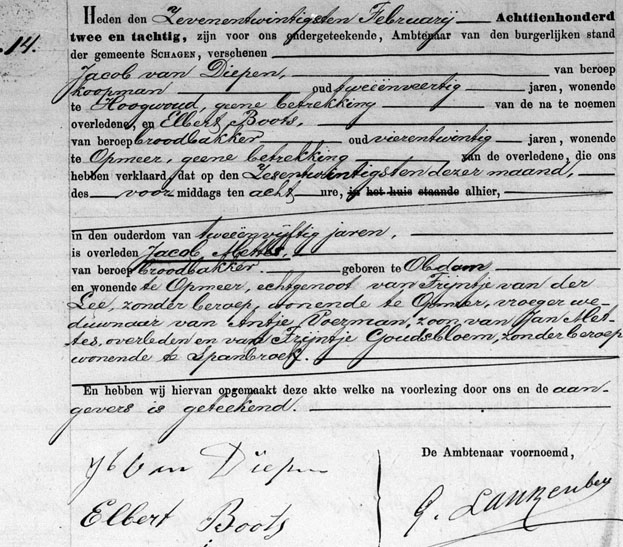 14.
Heden den Zevenentwintigsten Februarij Achttienhonderd
twee en tachtig, zijn voor ons ondergeteekende, Ambtenaar van den burgerlijken stand
der gemeente SCHAGEN, verschenen
Jacob van Diepen, van beroep
koopman oud tweeënveertig jaren, wonende
te Hoogwoud, geene betrekking van de na te noemen
overledene, en Elbert Boots,
van beroep broodbakker oud vierentwintig jaren, wonende
te Opmeer, geene betrekking van de overledene, die ons
hebben verklaard, dat op den Zesentwintigsten dezer maand,
des voormiddags ten acht ure, in het huis staande alhier,
in den ouderdom van tweeënvijftig jaren,
is overleden Jacob Mettes,
van beroep broodbakker. geboren te Obdam
en wonende te Opmeer, echtgenoot van Trijntje van der
Lee, zonder beroep, wonende te Opmeer, vroeger we-
duwnaar van Antje Poerman, zoon van Jan Met-
tes, overleden en van Trijntje Goudsbloem, zonder beroep
wonende te Spanbroek.
En hebben wij hiervan opgemaakt deze akte welke na voorlezing door ons en de aan-
gevers is geteekend.
De Ambtenaar voornoemd,
Van Diepen
Elbert Boots